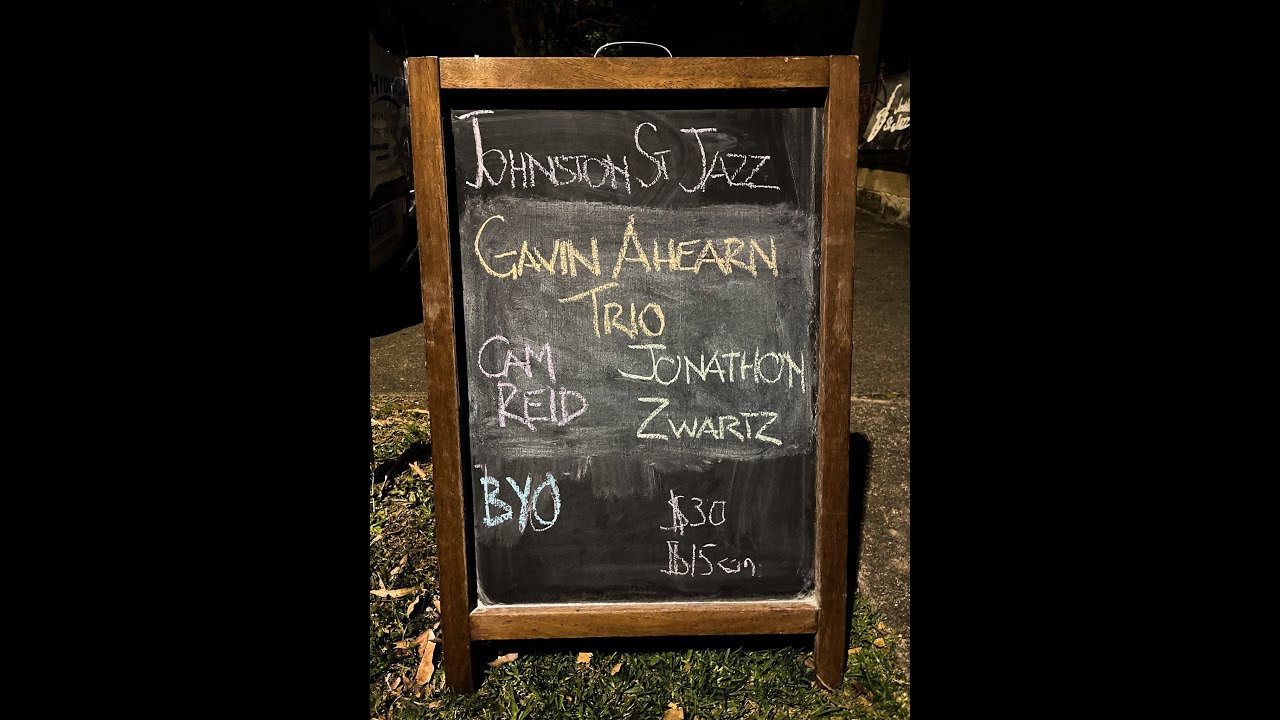 JOHNSTON ST JAZZ
GAVIN AHEARN
TRIO
CAM
REID
JONATHON
ZWARTZ
BYO
$30
$15 con.
& Jazz